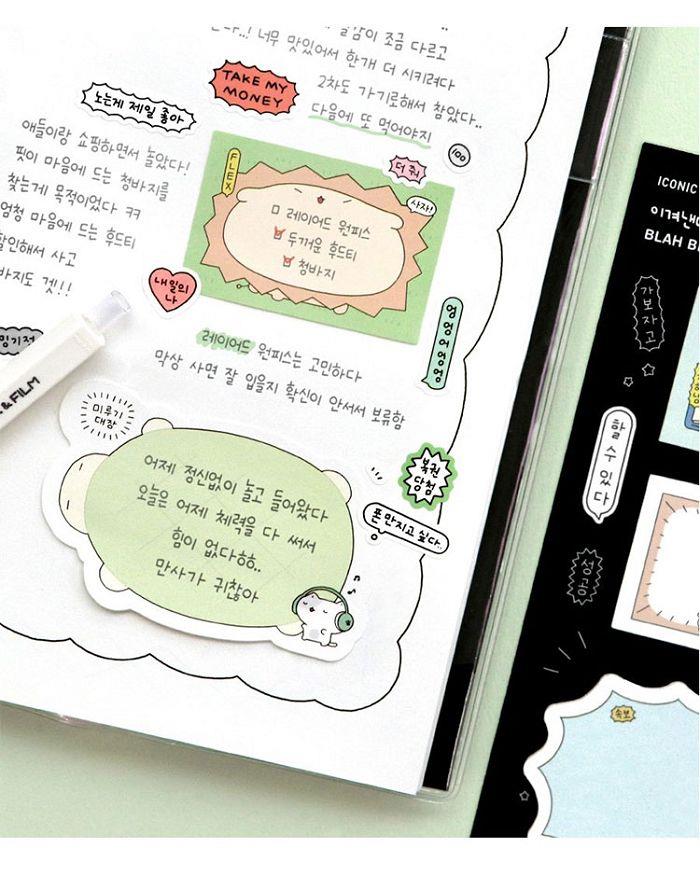 조금 다르고
너무 맛있어서 한개 더 시키려다
2차도 가기로해서 참았다..
다음에 또 먹어야지
TAKE MY
MONEY
노는게 제일 좋아
애들이랑 쇼핑하면서 놀았다!
핏이 마음에 드는 청바지를
찾는게 목적이었다 ㅋㅋ
엄청 마음에 드는 후드티
할인해서 사고
바지도 겟!!
100
FLEX
더 줘
사자!
레이어드 원피스
두꺼운 후드티
청바지
내일의
나
엉엉어엉엉
레이어드 원피스는 고민하다
막상 사면 잘 입을지 확신이 안서서 보류함
&FILM
미루기
대장
어제 정신없이 놀고 들어왔다
오늘은 어제 체력을 다 써서
힘이 없다ㅎㅎ..
만사가 귀찮아
복권
당첨
폰 만지고 싶다..
ICONIC
이겨낸
BLAH B
가보자고
할 수 있다
성공
속보